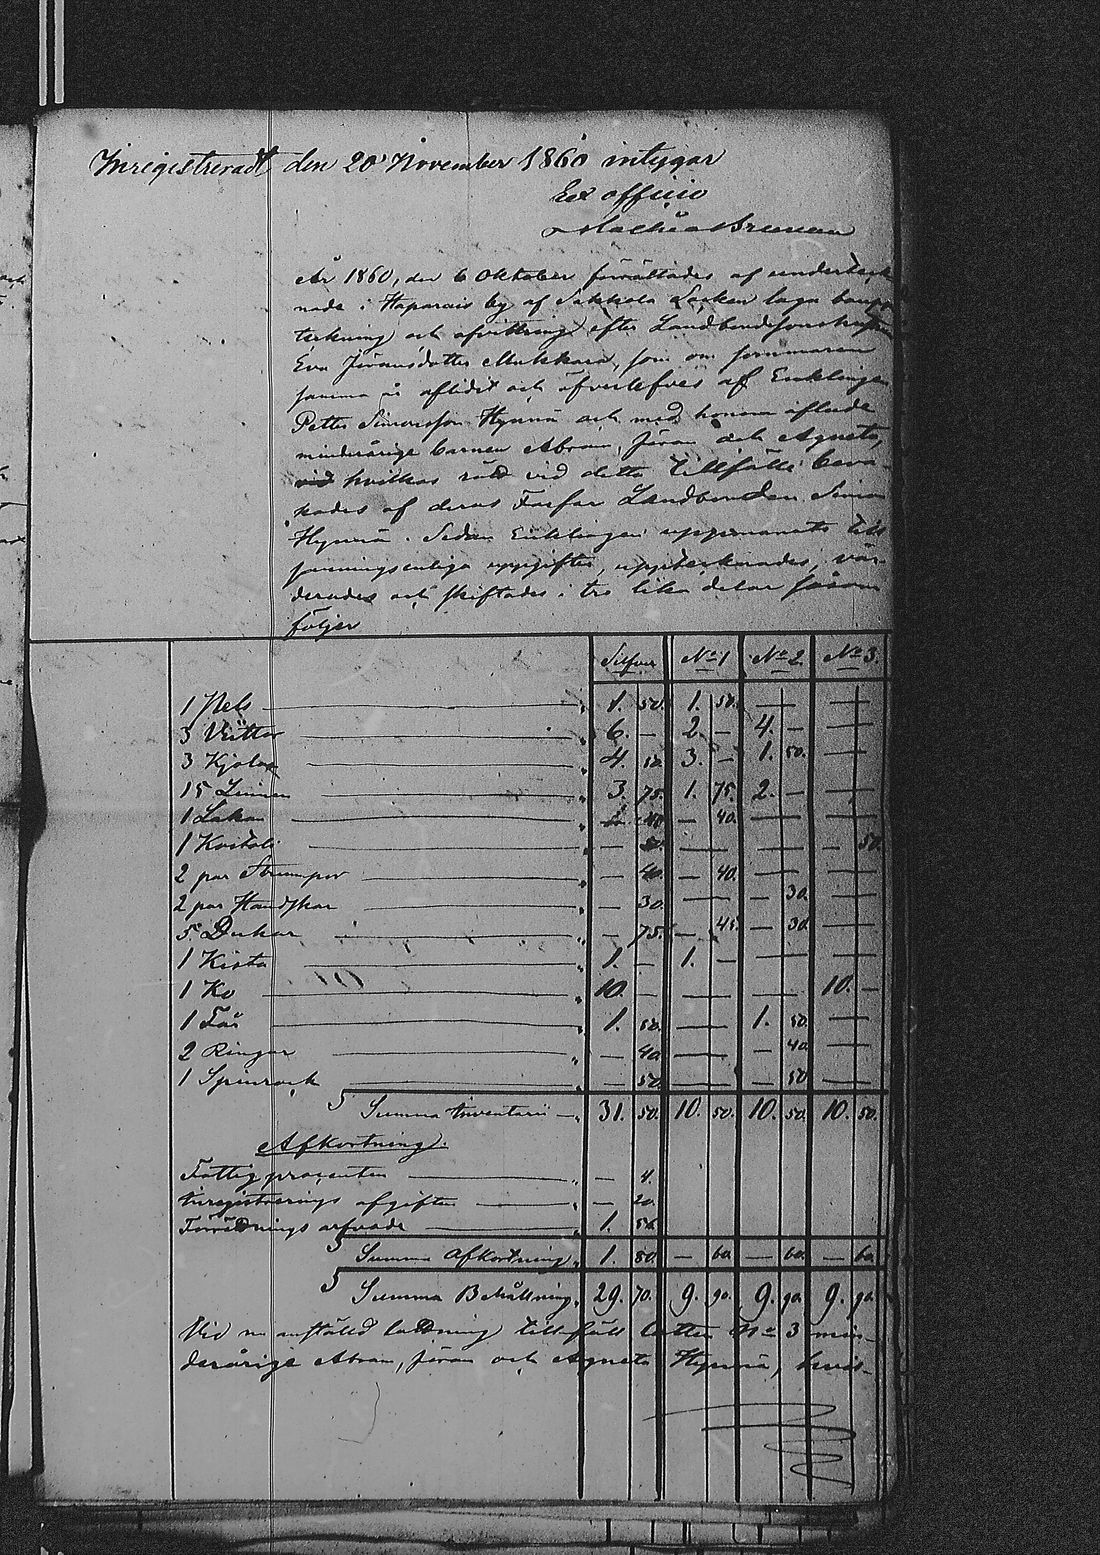 Inregistreradt den 20 November 1860 intygar
Ex officio
År 1860, den 6 Oktober förrättades af underteck-
nade i Haparais by af Sakkola Socken laga boupp-
tekning och afvittring efter Landbondesonehustrun
Eva Jöransdotter Mukkara, som om sommaren
samma år aflidit och öfverlefves af Enklingen
Petter Simonsson Hynnä och med honom aflade
minderårige barnen Abram, Jöran och Agneta,
hvilkas rätt vid detta tillfälle beva-
kades af deras Farfar Landbonden Simon
Hynnä. Sedan Enklingen uppmanats till
sanningsenliga uppgifter, upptecknades, vär-
derades och skiftades i tre lika delar såsom
följer
Silfver No 1 No 2 No 3.
1 Pels 1. 50. 1. 50. — —
3 6. — 2. — 4. — —
3 Kjolar 4. 50. 3. — 1. 50. —
15 Linnen 3. 75. 1. 75. 2. — —
1 Lakan 40. — 40. — —
1 — 50. — — — 50.
2 par Strumpor — 40. — 40. — —
2 par Handskar — 30. — — 30. —
5 Dukar — 75. — 45. — 30. —
1 Kista 1. — 1. — — —
1 Ko 10. — — — 10. —
1 Får 1. 50. — 1. 50. —
2 Ringar — 40. — — 40. —
1 Spinrock — 50. — — 50. —
Summa Inventarii 31. 50. 10. 50. 10. 50. 10. 50.
Afkortning.
Fattigprocenten — 4.
Inregistrerings afgiften — 20.
Förrättnings arfvode 1. 56.
Summa Afkortning 1. 80. — 60. — 60. — 60.
Summa Behållning 29. 70. 9. 90. 9. 90. 9. 90.
Vid nu anställd lottning tillföll lotten No 3 min-
derårige Abram, Jöran och Agneta Hynnä, hvil-